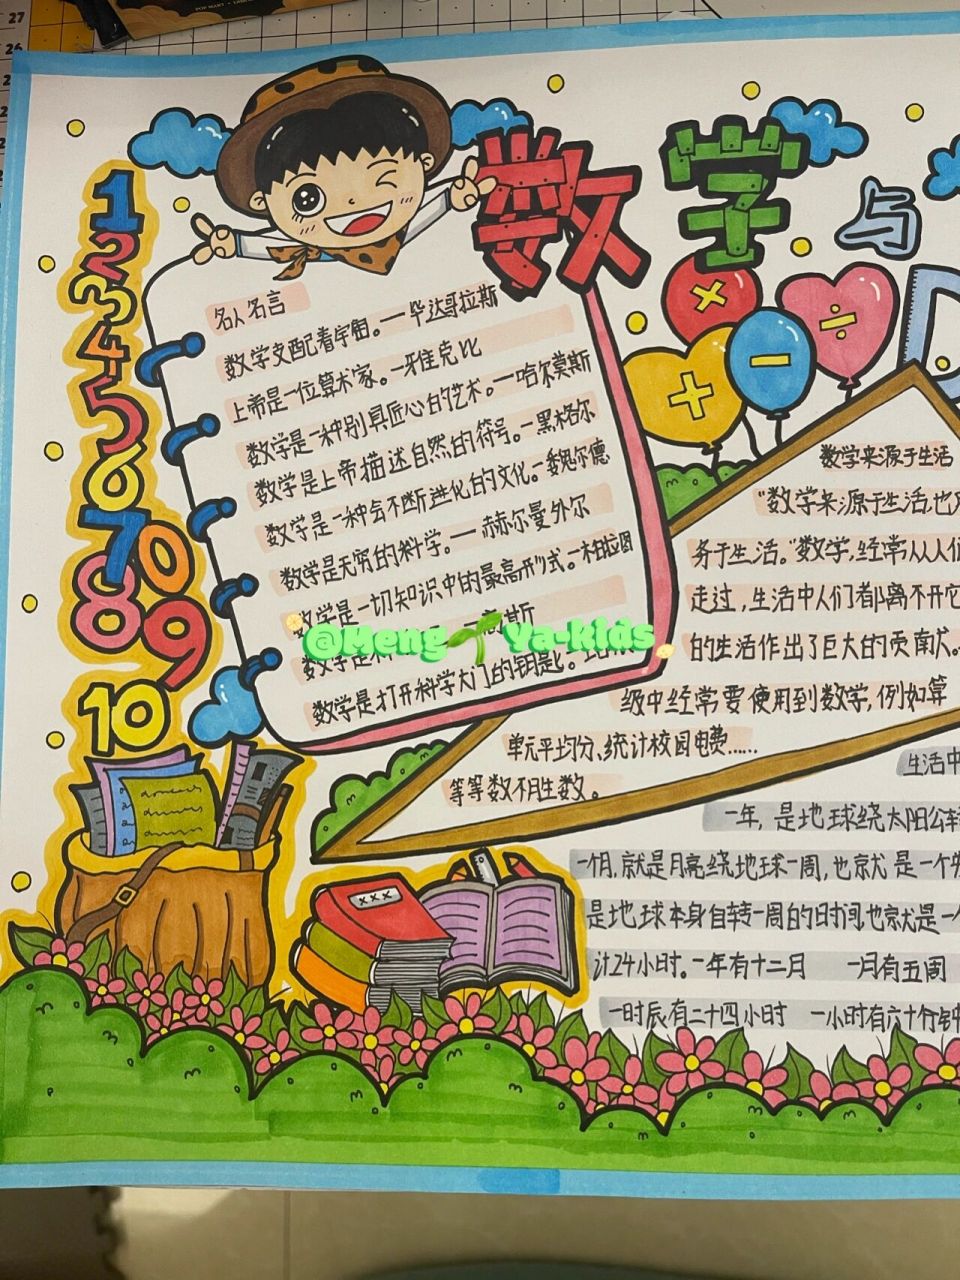 27
26
数学与
1
2
3
4
5
6
7 0
8 9
10
名人名言
数学支配着宇宙。—毕达哥拉斯
上帝是一位算术家。—牙隹克比
数学是一种别具匠心的艺术。—哈尔莫斯
数学是上帝描述自然的符号。—黑格尔
数学是一种会不断进化的文化。—魏尔德
数学是无穷的科学。—赫尔曼外尔
数学是一切知识中的最高形式。—柏拉图
数学是科
高斯
@Meng Ya-kids
数学是打开科学大门的钥匙。
× ÷
+ −
数学来源于生活
“数学来源于生活,也
务于生活。”数学,经常从人们
走过,生活中人们都离不开它
的生活作出了巨大的贡献。
级中经常要使用到数学,例如算
单元平均分、统计校园电费……
等等数不胜数。
生活中
一年,是地球绕太阳公转
一个月,就是月亮绕地球一周,也就是一个
是地球本身自转一周的时间,也就是一
计24小时。一年有十二月 一月有五周
一时辰有二十四小时 一小时有六十分钟
×××